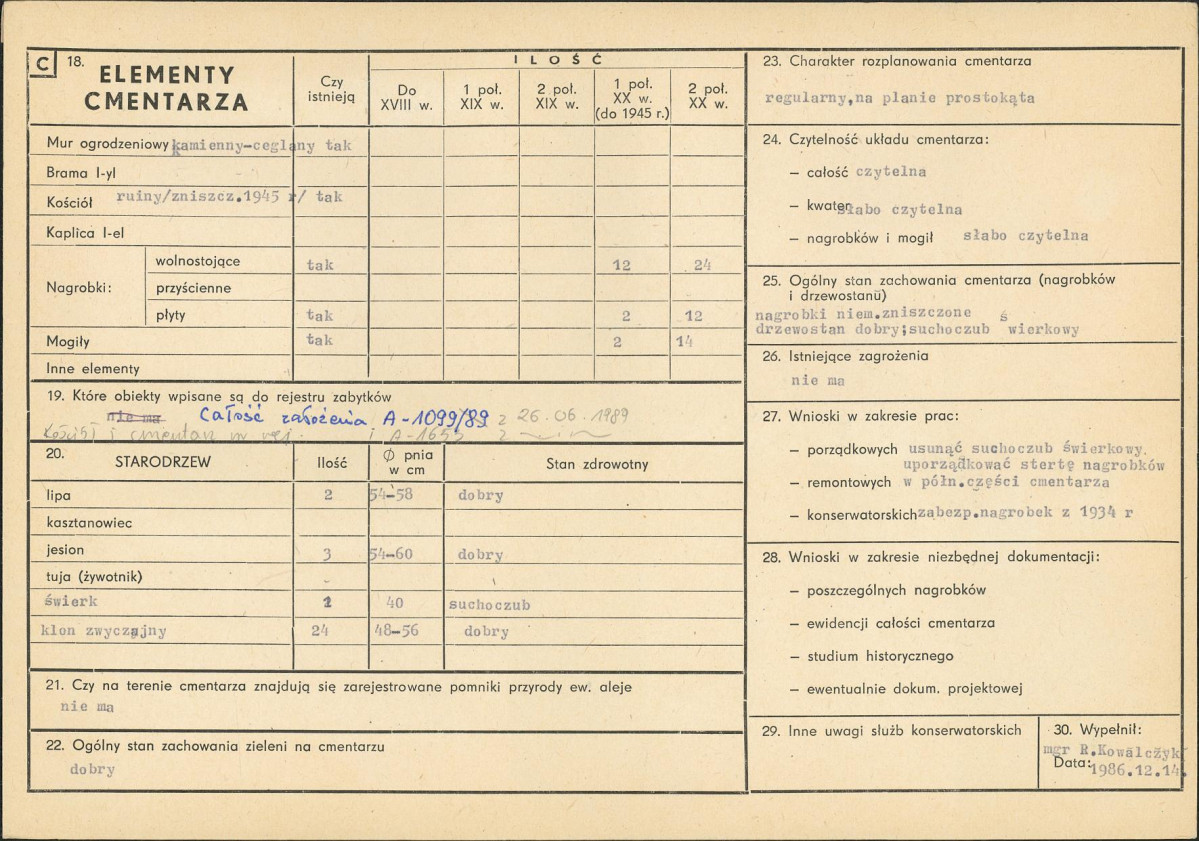 C 18. ELEMENTY CMENTARZA
Czy istnieją
ILOŚĆ
Do XVIII w.
1 poł. XIX w.
2 poł. XIX w.
1 poł. XX w. (do 1945 r.)
2 poł. XX w.
Mur ogrodzeniowy kamienny-ceglany tak
Brama I-yl
Kościół ruiny/zniszcz.1945 r/ tak
Kaplica I-el
Nagrobki:
wolnostojące tak 12 24
przyścienne
płyty tak 2 12
Mogiły tak 2 14
Inne elementy
19. Które obiekty wpisane są do rejestru zabytków
nie ma Całość założenia A-1099/89 z 26.06.1989
Kościół i cmentarz w rej. i A-1655 z
20. STARODRZEW Ilość Ø pnia w cm Stan zdrowotny
lipa 2 54-58 dobry
kasztanowiec
jesion 3 54-60 dobry
tuja (żywotnik) -
świerk 1 40 suchoczub
klon zwyczajny 24 48-56 dobry
21. Czy na terenie cmentarza znajdują się zarejestrowane pomniki przyrody ew. aleje
nie ma
22. Ogólny stan zachowania zieleni na cmentarzu
dobry
23. Charakter rozplanowania cmentarza
regularny,na planie prostokąta
24. Czytelność układu cmentarza:
– całość czytelna
– kwater słabo czytelna
– nagrobków i mogił słabo czytelna
25. Ogólny stan zachowania cmentarza (nagrobków
i drzewostanu)
nagrobki niem.zniszczone ś
drzewostan dobry;suchoczub wierkowy
26. Istniejące zagrożenia
nie ma
27. Wnioski w zakresie prac:
– porządkowych usunąć suchoczub świerkowy.
uporządkować stertę nagrobków
– remontowych w półn.części cmentarza
– konserwatorskich zabezp.nagrobek z 1934 r
28. Wnioski w zakresie niezbędnej dokumentacji:
– poszczególnych nagrobków
– ewidencji całości cmentarza
– studium historycznego
– ewentualnie dokum. projektowej
29. Inne uwagi służb konserwatorskich
30. Wypełnił:
mgr R.Kowalczyk
Data: 1986.12.14.